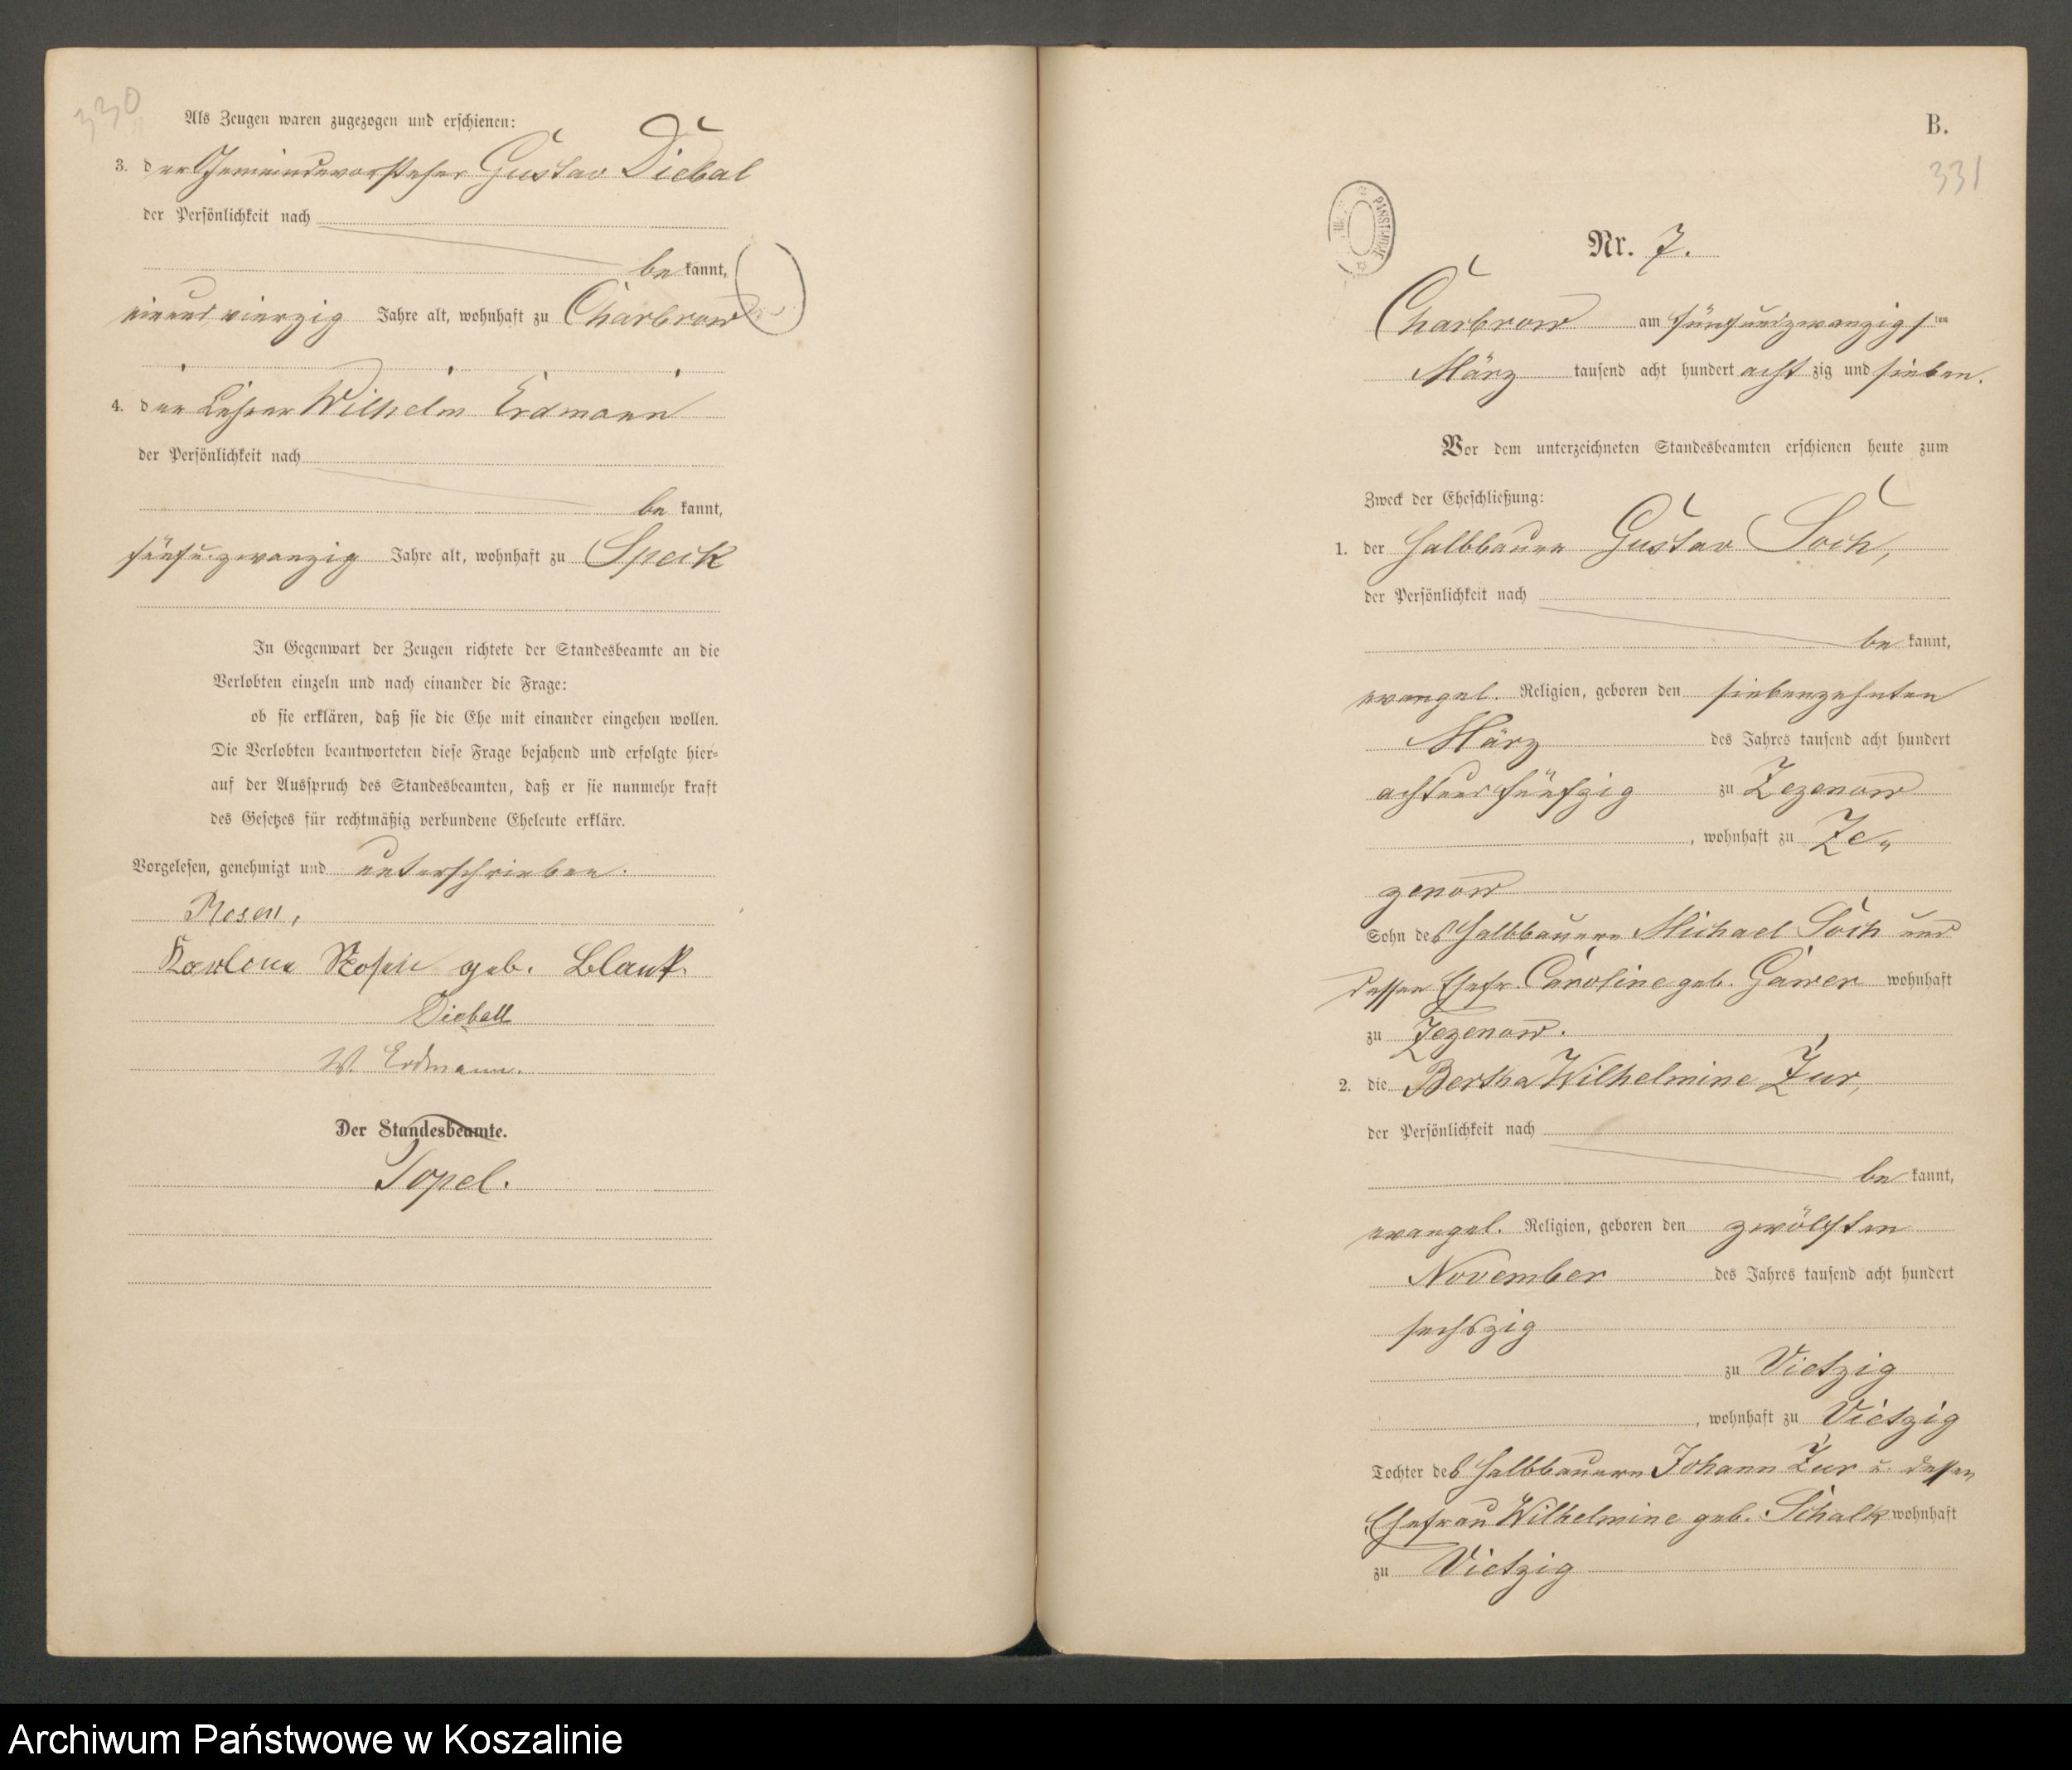 330
Als Zeugen waren zugezogen und erschienen:
3. der Gemeindevorsteher Gustav Diebal
der Persönlichkeit nach
be kannt,
einund vierzig Jahre alt, wohnhaft zu Charbrow
4. der Lehrer Wilhelm Erdmann
der Persönlichkeit nach
be kannt,
fünfu.zwanzig Jahre alt, wohnhaft zu Speck
In Gegenwart der Zeugen richtete der Standesbeamte an die
Verlobten einzeln und nach einander die Frage:
ob sie erklären, daß sie die Ehe mit einander eingehen wollen.
Die Verlobten beantworteten diese Frage bejahend und erfolgte hier-
auf der Ausspruch des Standesbeamten, daß er sie nunmehr kraft
des Gesetzes für rechtmäßig verbundene Eheleute erkläre.
Vorgelesen, genehmigt und unterschrieben.
geb. Blank.
Dieball
W. Erdmann.
Der Standesbeamte.
Topel.
B.
331
PAŃSTWOWE
Nr. 7.
Charbrow am fünfundzwanzigsten
März tausend acht hundert acht zig und sieben.
Vor dem unterzeichneten Standesbeamten erschienen heute zum
Zweck der Eheschließung:
1. der Halbbauer Gustav Soch,
der Persönlichkeit nach
be kannt,
evangel. Religion, geboren den siebenzehnten
März des Jahres tausend acht hundert
achtundfünfzig zu Zezenow
, wohnhaft zu Ze„
zenow
Sohn des Halbbauern Michael Soch und
dessen Ehefr. Caroline geb. Gawer wohnhaft
zu Zezenow.
2. die Bertha Wilhelmine Zur,
der Persönlichkeit nach
be kannt,
evangel. Religion, geboren den zwölften
November des Jahres tausend acht hundert
sechszig
zu Vietzig
, wohnhaft zu Vietzig
Tochter des Halbbauern Johann Zur u. dessen
Ehefrau Wilhelmine geb. Schalk wohnhaft
zu Vietzig
Archiwum Państwowe w Koszalinie